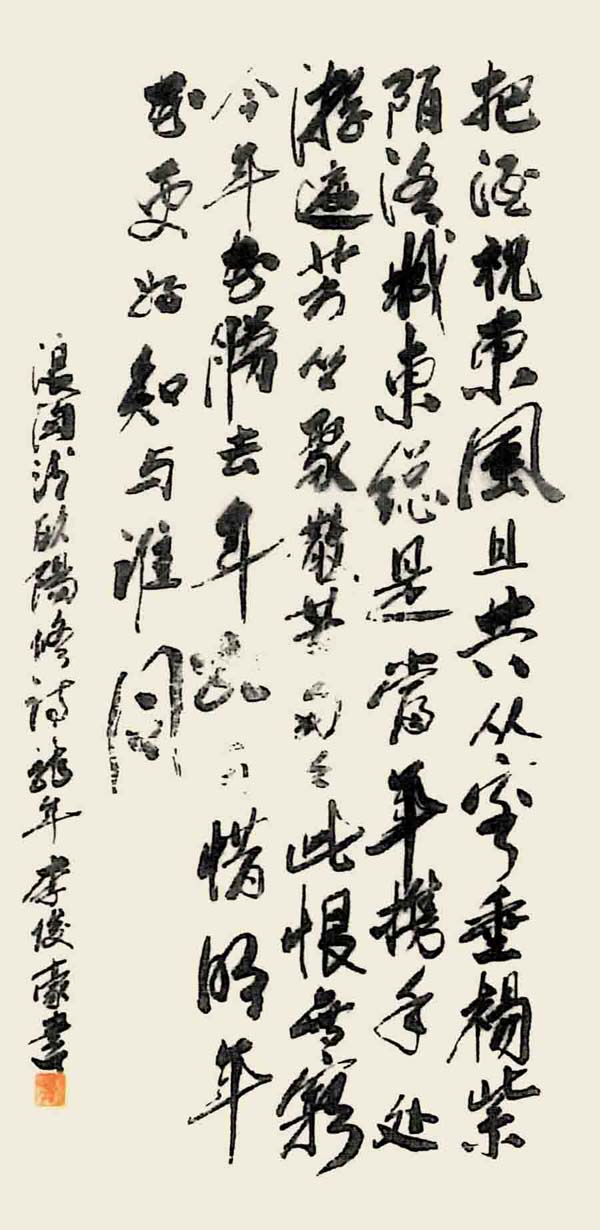 把酒祝東風且共从容垂楊紫
陌洛城東總是當年携手处
游遍芳丛聚散苦匆匆此恨無窮
今年花勝去年红可惜明年
花更好知与誰同
浪淘沙欧陽修詩龍年李俊豪書